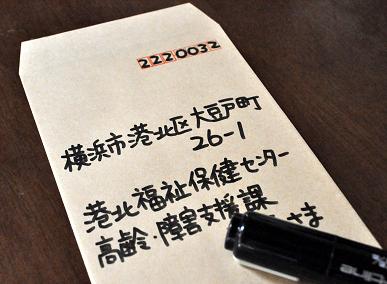 2220032
横浜市港北区大豆戸町
26-1
港北福祉保健センター
高齢・障害支援課
さま